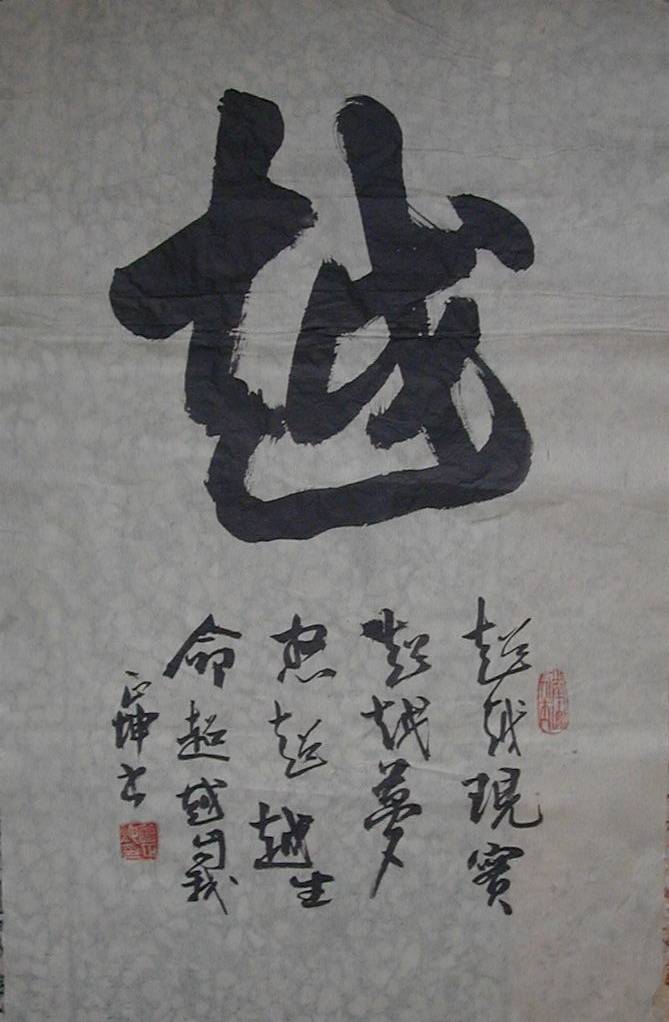 越
超越現實
超越夢
想超越生
命超越自我
正坤书